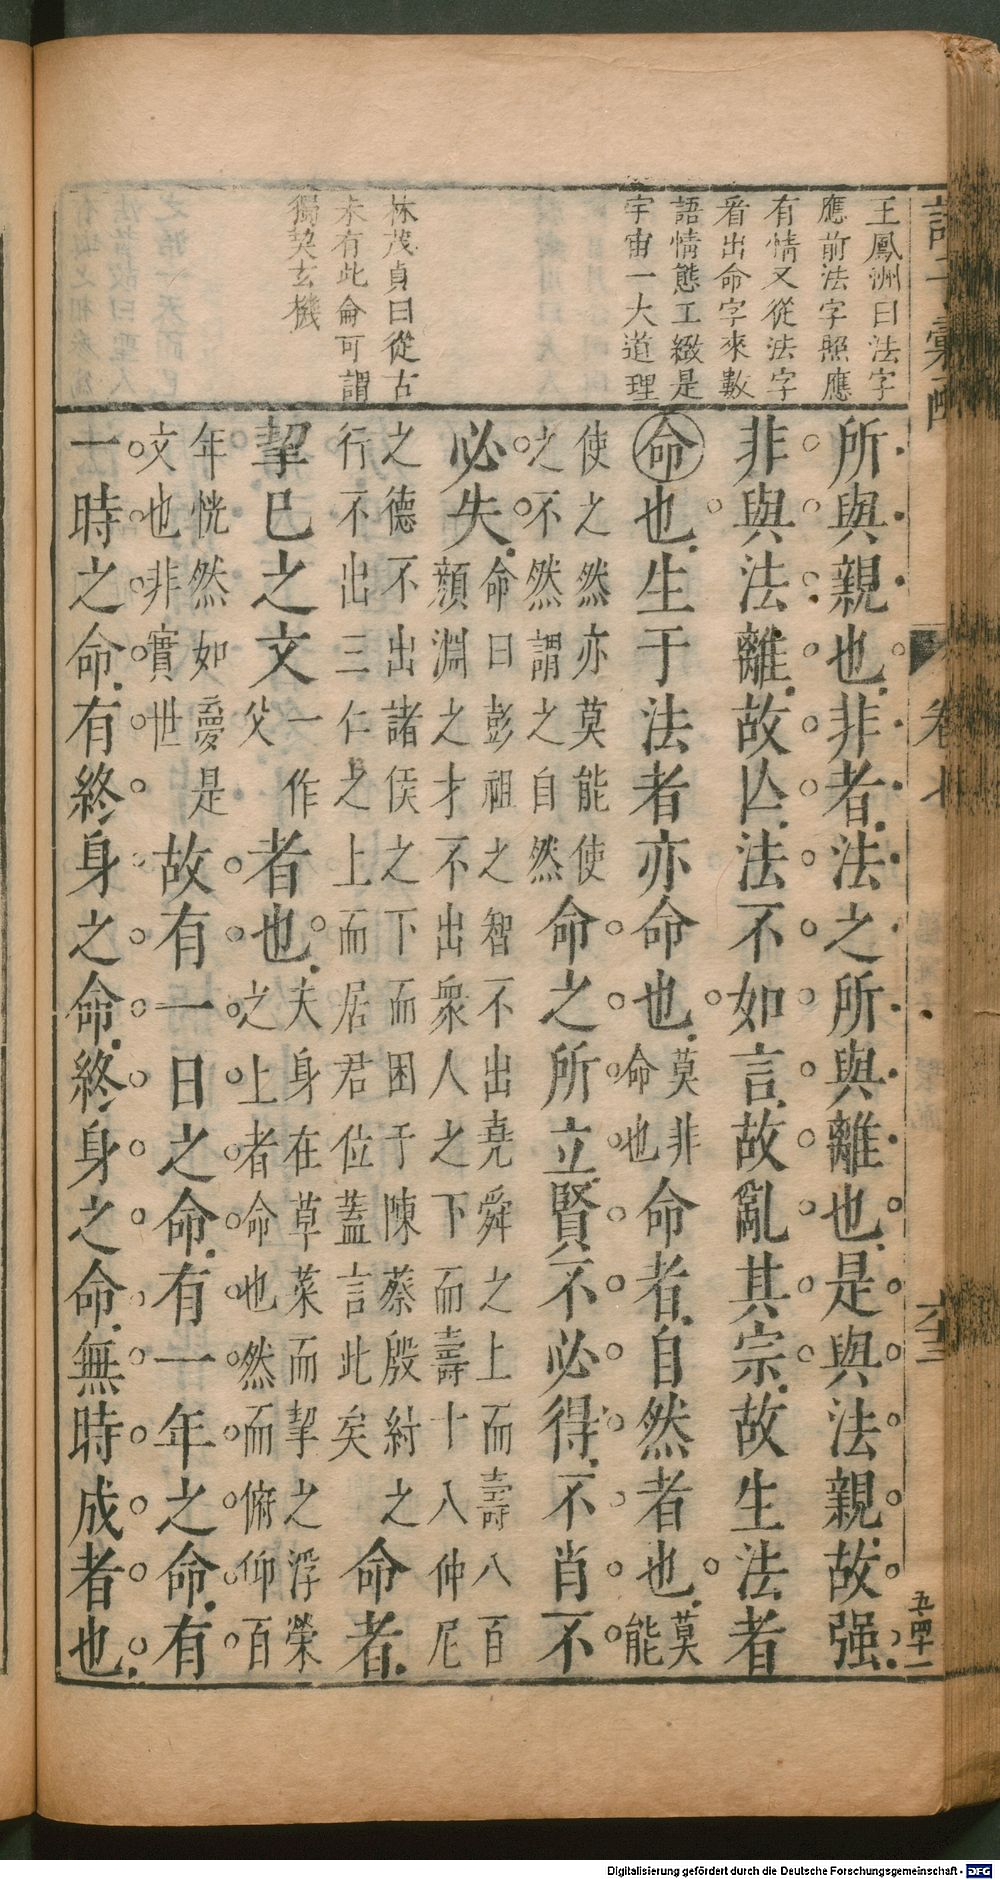 王鳳洲曰法字
應前法字照應
有情又從法字
看出命字來數
語情態工緻是
宇宙一大道理
林茂貞曰從古
未有此侖可謂
獨契玄機
所與親也非者法之所與離也是與法親故强
非與法離故亾法不如言故亂其宗故生法者
命也生于法者亦命也
莫非
命也
命者自然者也
莫
能
使之然亦莫能使
之不然謂之自然
命之所立賢不必得不肖不
必失
命曰彭祖之智不出堯舜之上而壽八百
顏淵之才不出衆人之下而壽十八仲尼
之德不出諸侯之下而困于陳蔡殷紂之
行不出三仁之上而居君位蓋言此矣
命者
挈已之文
一作
父
者也
夫身在草菜而挈之浮榮
之上者命也然而俯仰百
年恍然如夢是
文也非實世
故有一日之命有一年之命有
一時之命有終身之命終身之命無時成者也
卷七
六十三
五四十一
Digitalisierung gefördert durch die Deutsche Forschungsgemeinschaft - DFG